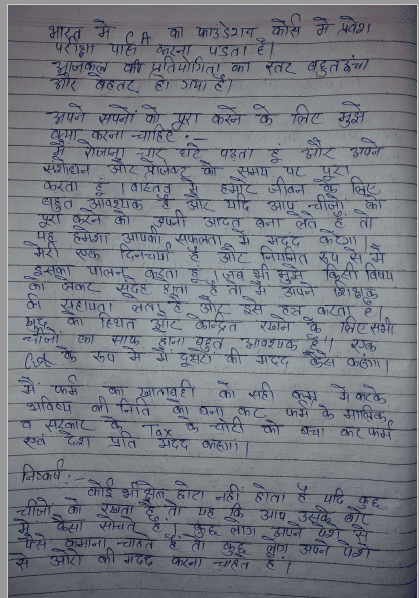 भारत में CA का फाउंडेशन कोर्स में प्रवेश
परीक्षा पास करना पडता है।
आजकल की प्रतियोगिता का स्तर बहुत ऊंचा
और बेहतर हो गया है।
अपने सपनों को पूरा करने के लिए मुझे
क्या करना चाहिए :-
मैं रोजाना चार घंटे पढ़ता हूं और अपने
संशोधन और प्रोजेक्ट को समय पर पूरा
करता हूं। वास्तव में हमारे जीवन के लिए
बहुत आवश्यक है और यदि आप चीजों को
पूरा करने की अपनी आदत बना लेते हैं तो
यह हमेशा आपकी सफलता में मदद करेगा।
मेरी एक दिनचर्या है और नियमित रूप से मैं
इसका पालन करता हूं। जब भी मुझे किसी विषय
को लेकर संदेह होता है तो मैं अपने शिक्षक
की सहायता लेता हूं और इसे हल करता हूं
खुद को स्थित और केन्द्रित रखने के लिए सभी
चीजों का साफ होना बहुत आवश्यक है। एक
CA के रूप में मैं दूसरों की मदद कैसे करूंगा।
मैं फर्म का खाताबही को सही क्रम में करके
भविष्य की निति को बना कर, फर्म के मालिक
व सरकार के Tax के चोरी को बचा कर फर्म
एवं देश प्रति मदद करूंगा।
निष्कर्ष :-
कोई भी क्षेत्र छोटा नहीं होता है यदि कुछ
चीजों को रखता है तो यह कि आप उसके बारे
में कैसा सोचते हैं। कुछ लोग अपने पेशे से
पैसे कमाना चाहते हैं तो कुछ लोग अपने पेशे
से औरों की मदद करना चाहते हैं।